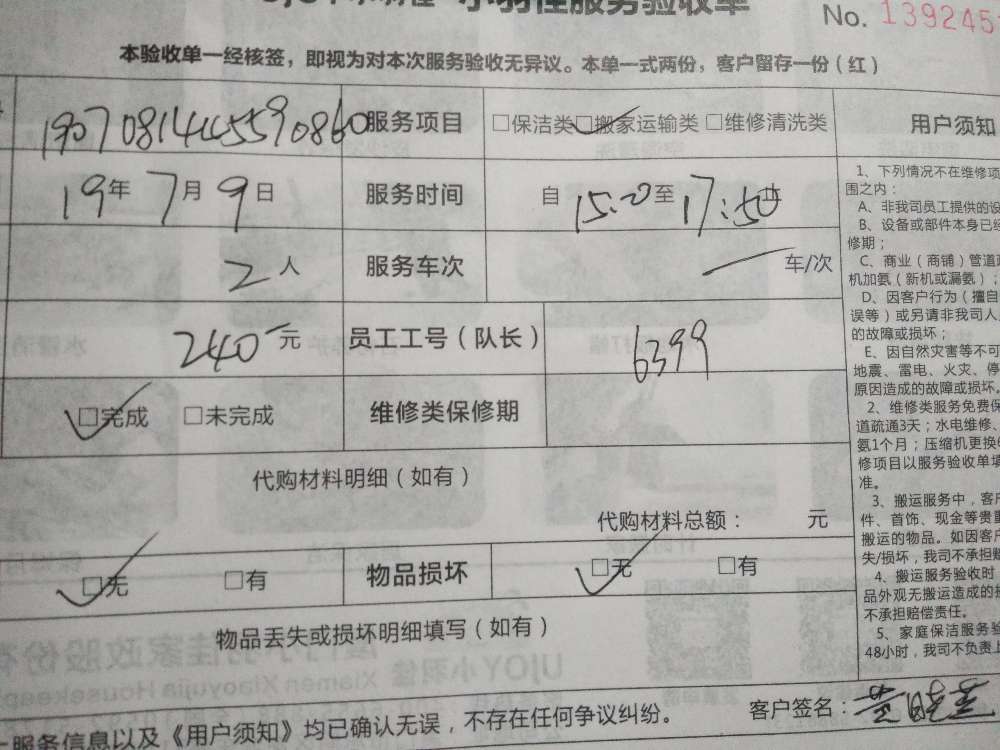 小羽佳服务验收单
No. 139245
本验收单一经核签，即视为对本次服务验收无异议。本单一式两份，客户留存一份（红）
19070814445590860 服务项目 □保洁类 □搬家运输类 □维修清洗类 用户须知
19年7月9日 服务时间 自15:20至17:50
2人 服务车次 车/次
240元 员工工号（队长） 6399
□完成 □未完成 维修类保修期
代购材料明细（如有）
代购材料总额： 元
□无 □有 物品损坏 □无 □有
物品丢失或损坏明细填写（如有）
服务信息以及《用户须知》均已确认无误，不存在任何争议纠纷。 客户签名：
1、下列情况不在维修项
围之内：
A、非我司员工提供的设
B、设备或部件本身已经
修期；
C、商业（商铺）管道疏
机加氨（新机或漏氨）；
D、因客户行为（擅自
误等）或另请非我司人
的故障或损坏；
E、因自然灾害等不可
地震、雷电、火灾、停
原因造成的故障或损坏。
2、维修类服务免费保
道疏通3天；水电维修、
氨1个月；压缩机更换
修项目以服务验收单填
准。
3、搬运服务中，客户
件、首饰、现金等贵重
搬运的物品。如因客户
失/损坏，我司不承担赔
4、搬运服务验收时
品外观无搬运造成的损
不承担赔偿责任。
5、家庭保洁服务验
48小时，我司不负责上